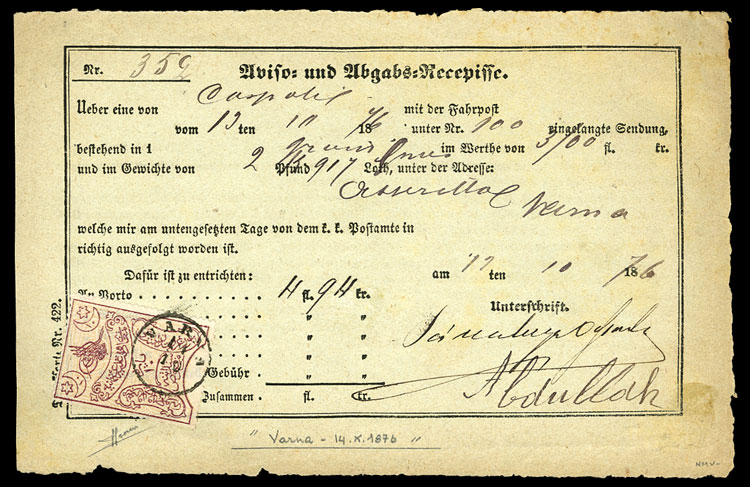 Nr. 352
Aviso- und Abgabs-Recepisse.
Ueber eine von mit der Fahrpost
vom 13 ten 10 1876 unter Nr. 100 eingelangte Sendung,
bestehend in 1 im Werthe von 3700 fl. kr.
und im Gewichte von 2 Pfund 917 Loth, unter der Adresse:
Varna
welche mir am untengesetzten Tage von dem k. k. Postamte in
richtig ausgefolgt worden ist.
Dafür ist zu entrichten:
am ten 10 1876
An Porto . . . . . . . . . . 4 fl. 94 kr.
Unterschrift.
" "
" "
" "
Gebühr . " "
Zusammen . fl. kr.
Abdullah
Nr. 422.
VARNA
"Varna - 14.X.1876"
NMV-